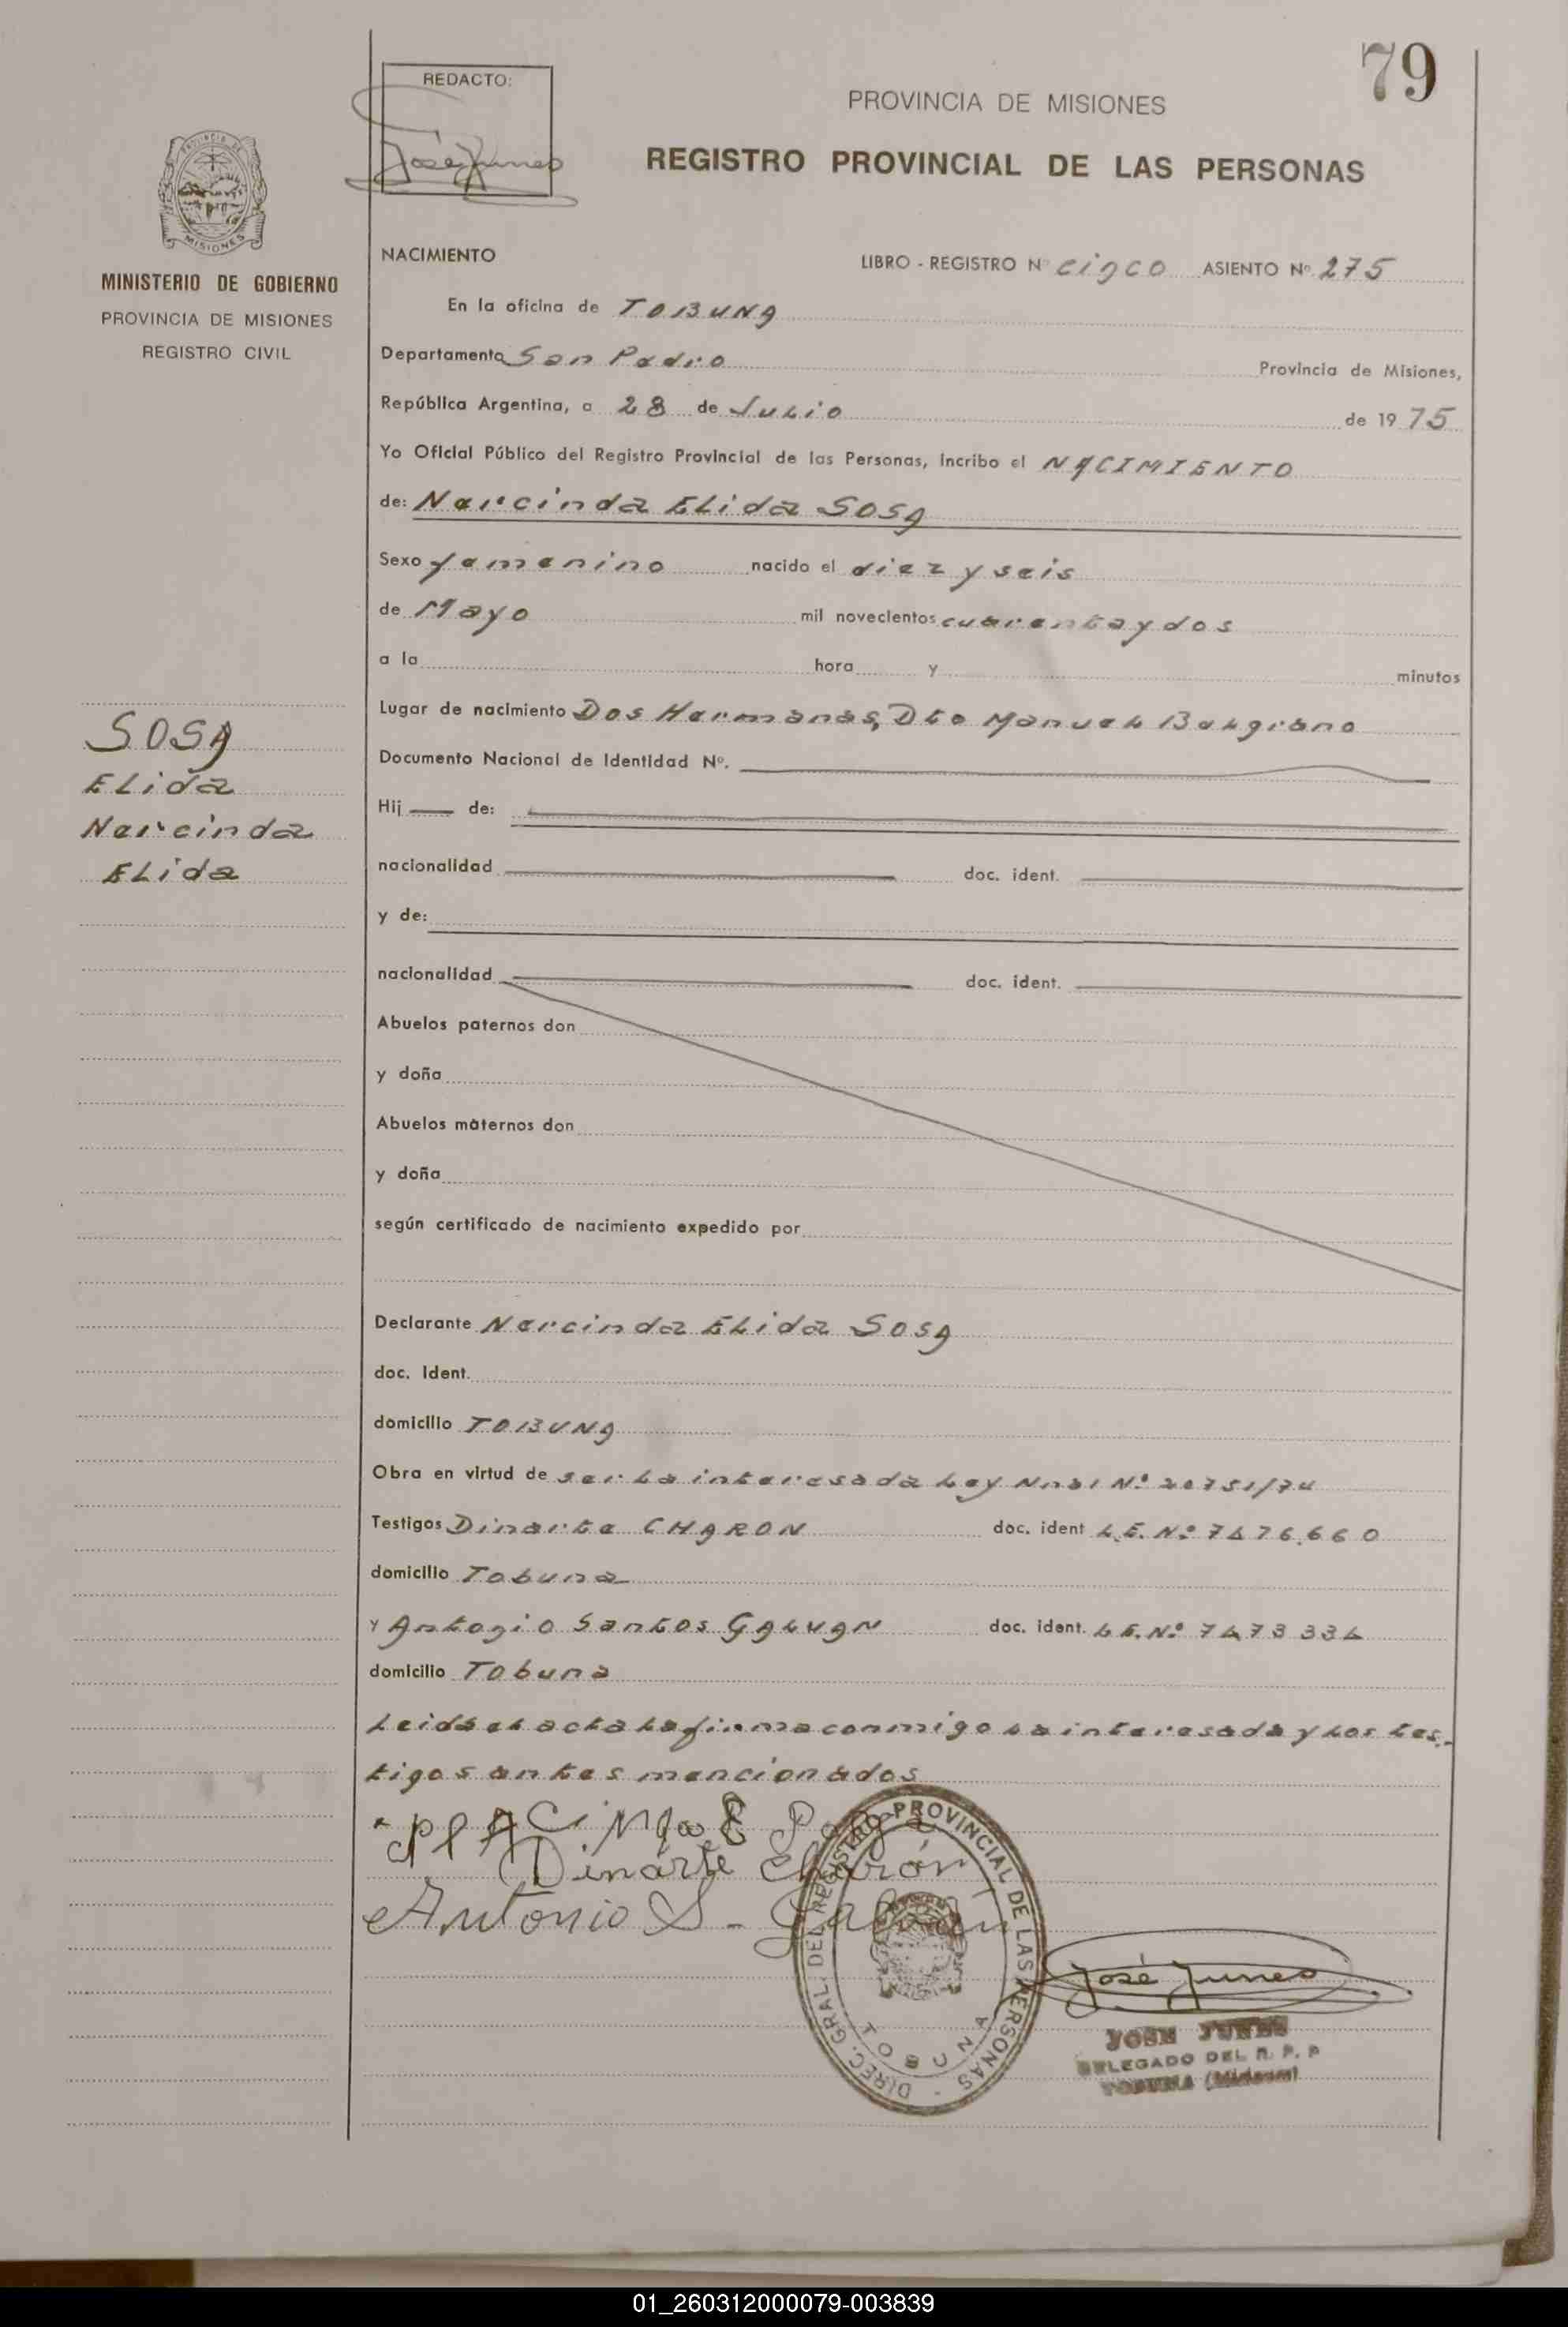 79
REDACTO:
José Junes
PROVINCIA DE MISIONES
REGISTRO PROVINCIAL DE LAS PERSONAS
PROVINCIA DE
MISIONES
MINISTERIO DE GOBIERNO
PROVINCIA DE MISIONES
REGISTRO CIVIL
NACIMIENTO
LIBRO - REGISTRO Nº cinco ASIENTO Nº 275
En la oficina de TOBUNA
Departamento San Pedro Provincia de Misiones,
República Argentina, a 28 de Julio de 1975
Yo Oficial Público del Registro Provincial de las Personas, incribo el NACIMIENTO
de: Narcinda Elida SOSA
Sexo femenino nacido el diez y seis
de Mayo mil novecientos cuarenta y dos
a la hora y minutos
Lugar de nacimiento Dos Hermanas, Dto Manuel Belgrano
Documento Nacional de Identidad Nº.
Hij de:
nacionalidad doc. ident.
y de:
nacionalidad doc. ident.
Abuelos paternos don
y doña
Abuelos maternos don
y doña
según certificado de nacimiento expedido por
SOSA
Elida
Narcinda
Elida
Declarante Narcinda Elida SOSA
doc. Ident.
domicilio TOBUNA
Obra en virtud de ser la interesada Ley Nnal Nº 20751/74
Testigos Dinarte CHARON doc. ident L.E. Nº 7476.660
domicilio Tobuna
y Antonio Santos GALVAN doc. ident. L E. Nº 7473334
domicilio Tobuna
Leida el acta la firma conmigo la interesada y los tes-
tigos antes mencionados
Dinarte Charón
Antonio S. Galván
DIREC. GRAL. DEL REGISTRO PROVINCIAL DE LAS PERSONAS -
TOBUNA
José Junes
JOSE JUNES
DELEGADO DEL R. P. P
TOBUNA (Misiones)
01_260312000079-003839